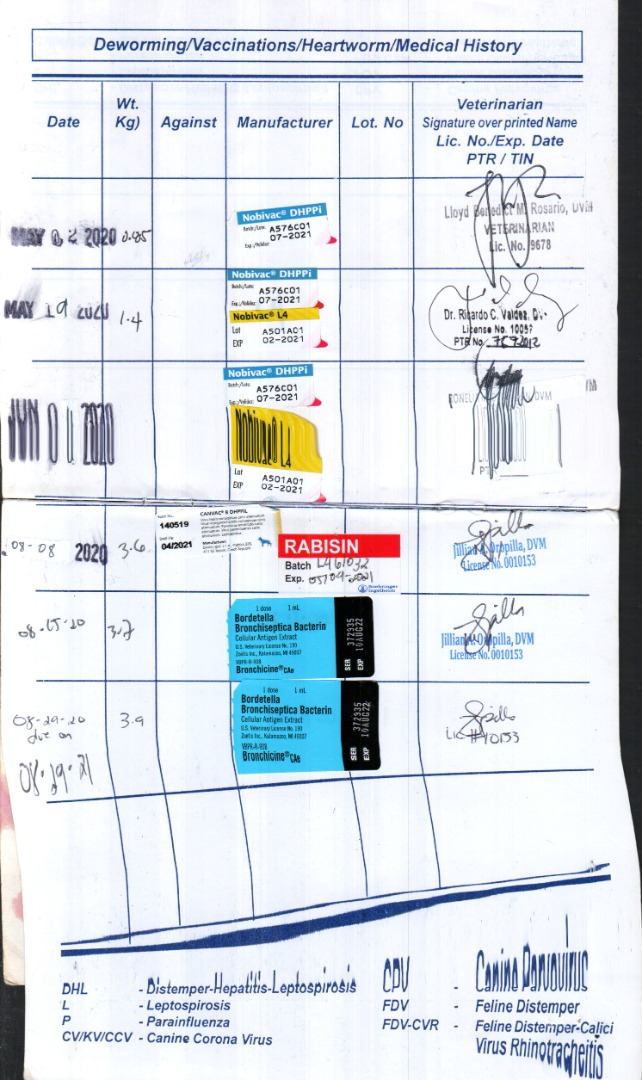 Deworming/Vaccinations/Heartworm/Medical History
Date
Wt. Kg)
Against
Manufacturer
Lot. No
Veterinarian
Signature over printed Name
Lic. No./Exp. Date
PTR / TIN
MAY 2020 0.85
Nobivac® DHPPi
A576C01
07-2021
Lloyd Benedict M. Rosario, DVM
VETERINARIAN
Lic. No. 9678
MAY 19 2020 1.4
Nobivac® DHPPi
A576C01
07-2021
Nobivac® L4
Lot A501A01
EXP 02-2021
Dr. Ricardo C. Valdez, DVM
License No. 10097
PTR No.
JUN 01 2020
Nobivac® DHPPi
A576C01
07-2021
Nobivac® L4
Lot A501A01
EXP 02-2021
DVM
08-08 2020 3.6
140519
04/2021
CANVAC® 8 DHPPiL
RABISIN
Batch L461032
Exp. 05/09-2021
Boehringer Ingelheim
Jillian Oropilla, DVM
License No. 0010153
08-15-20 3.7
1 dose 1 mL
Bordetella
Bronchiseptica Bacterin
Cellular Antigen Extract
U.S. Veterinary License No. 190
Zoetis Inc., Kalamazoo, MI 49007
Bronchicine® CAe
SER 372335
EXP 10AUG22
Jillian Oropilla, DVM
License No. 0010153
08-29-20 3.9
due on
08-29-21
1 dose 1 mL
Bordetella
Bronchiseptica Bacterin
Cellular Antigen Extract
U.S. Veterinary License No. 190
Zoetis Inc., Kalamazoo, MI 49007
Bronchicine® CAe
SER 372335
EXP 10AUG22
Lic #10153
DHL - Distemper-Hepatitis-Leptospirosis
L - Leptospirosis
P - Parainfluenza
CV/KV/CCV - Canine Corona Virus
CPV - Canine Parvovirus
FDV - Feline Distemper
FDV-CVR - Feline Distemper-Calici
Virus Rhinotracheitis